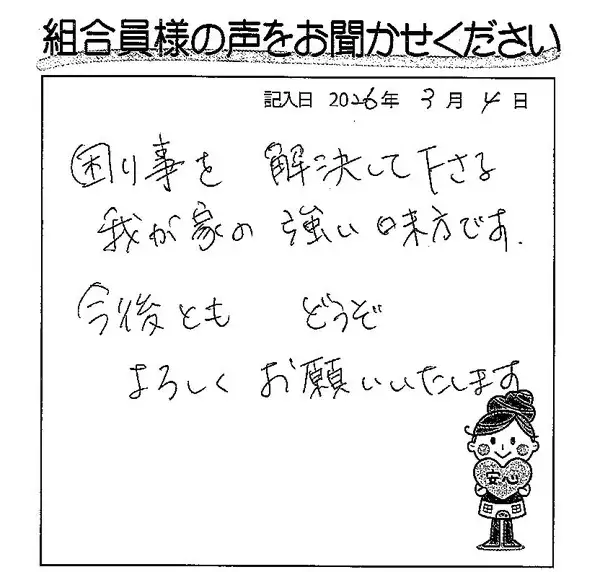 組合員様の声をお聞かせください
記入日 2026年 3月 4日
困り事を 解決して下さる
我が家の 強い味方です.
今後とも どうぞ
よろしく お願いいたします
安心